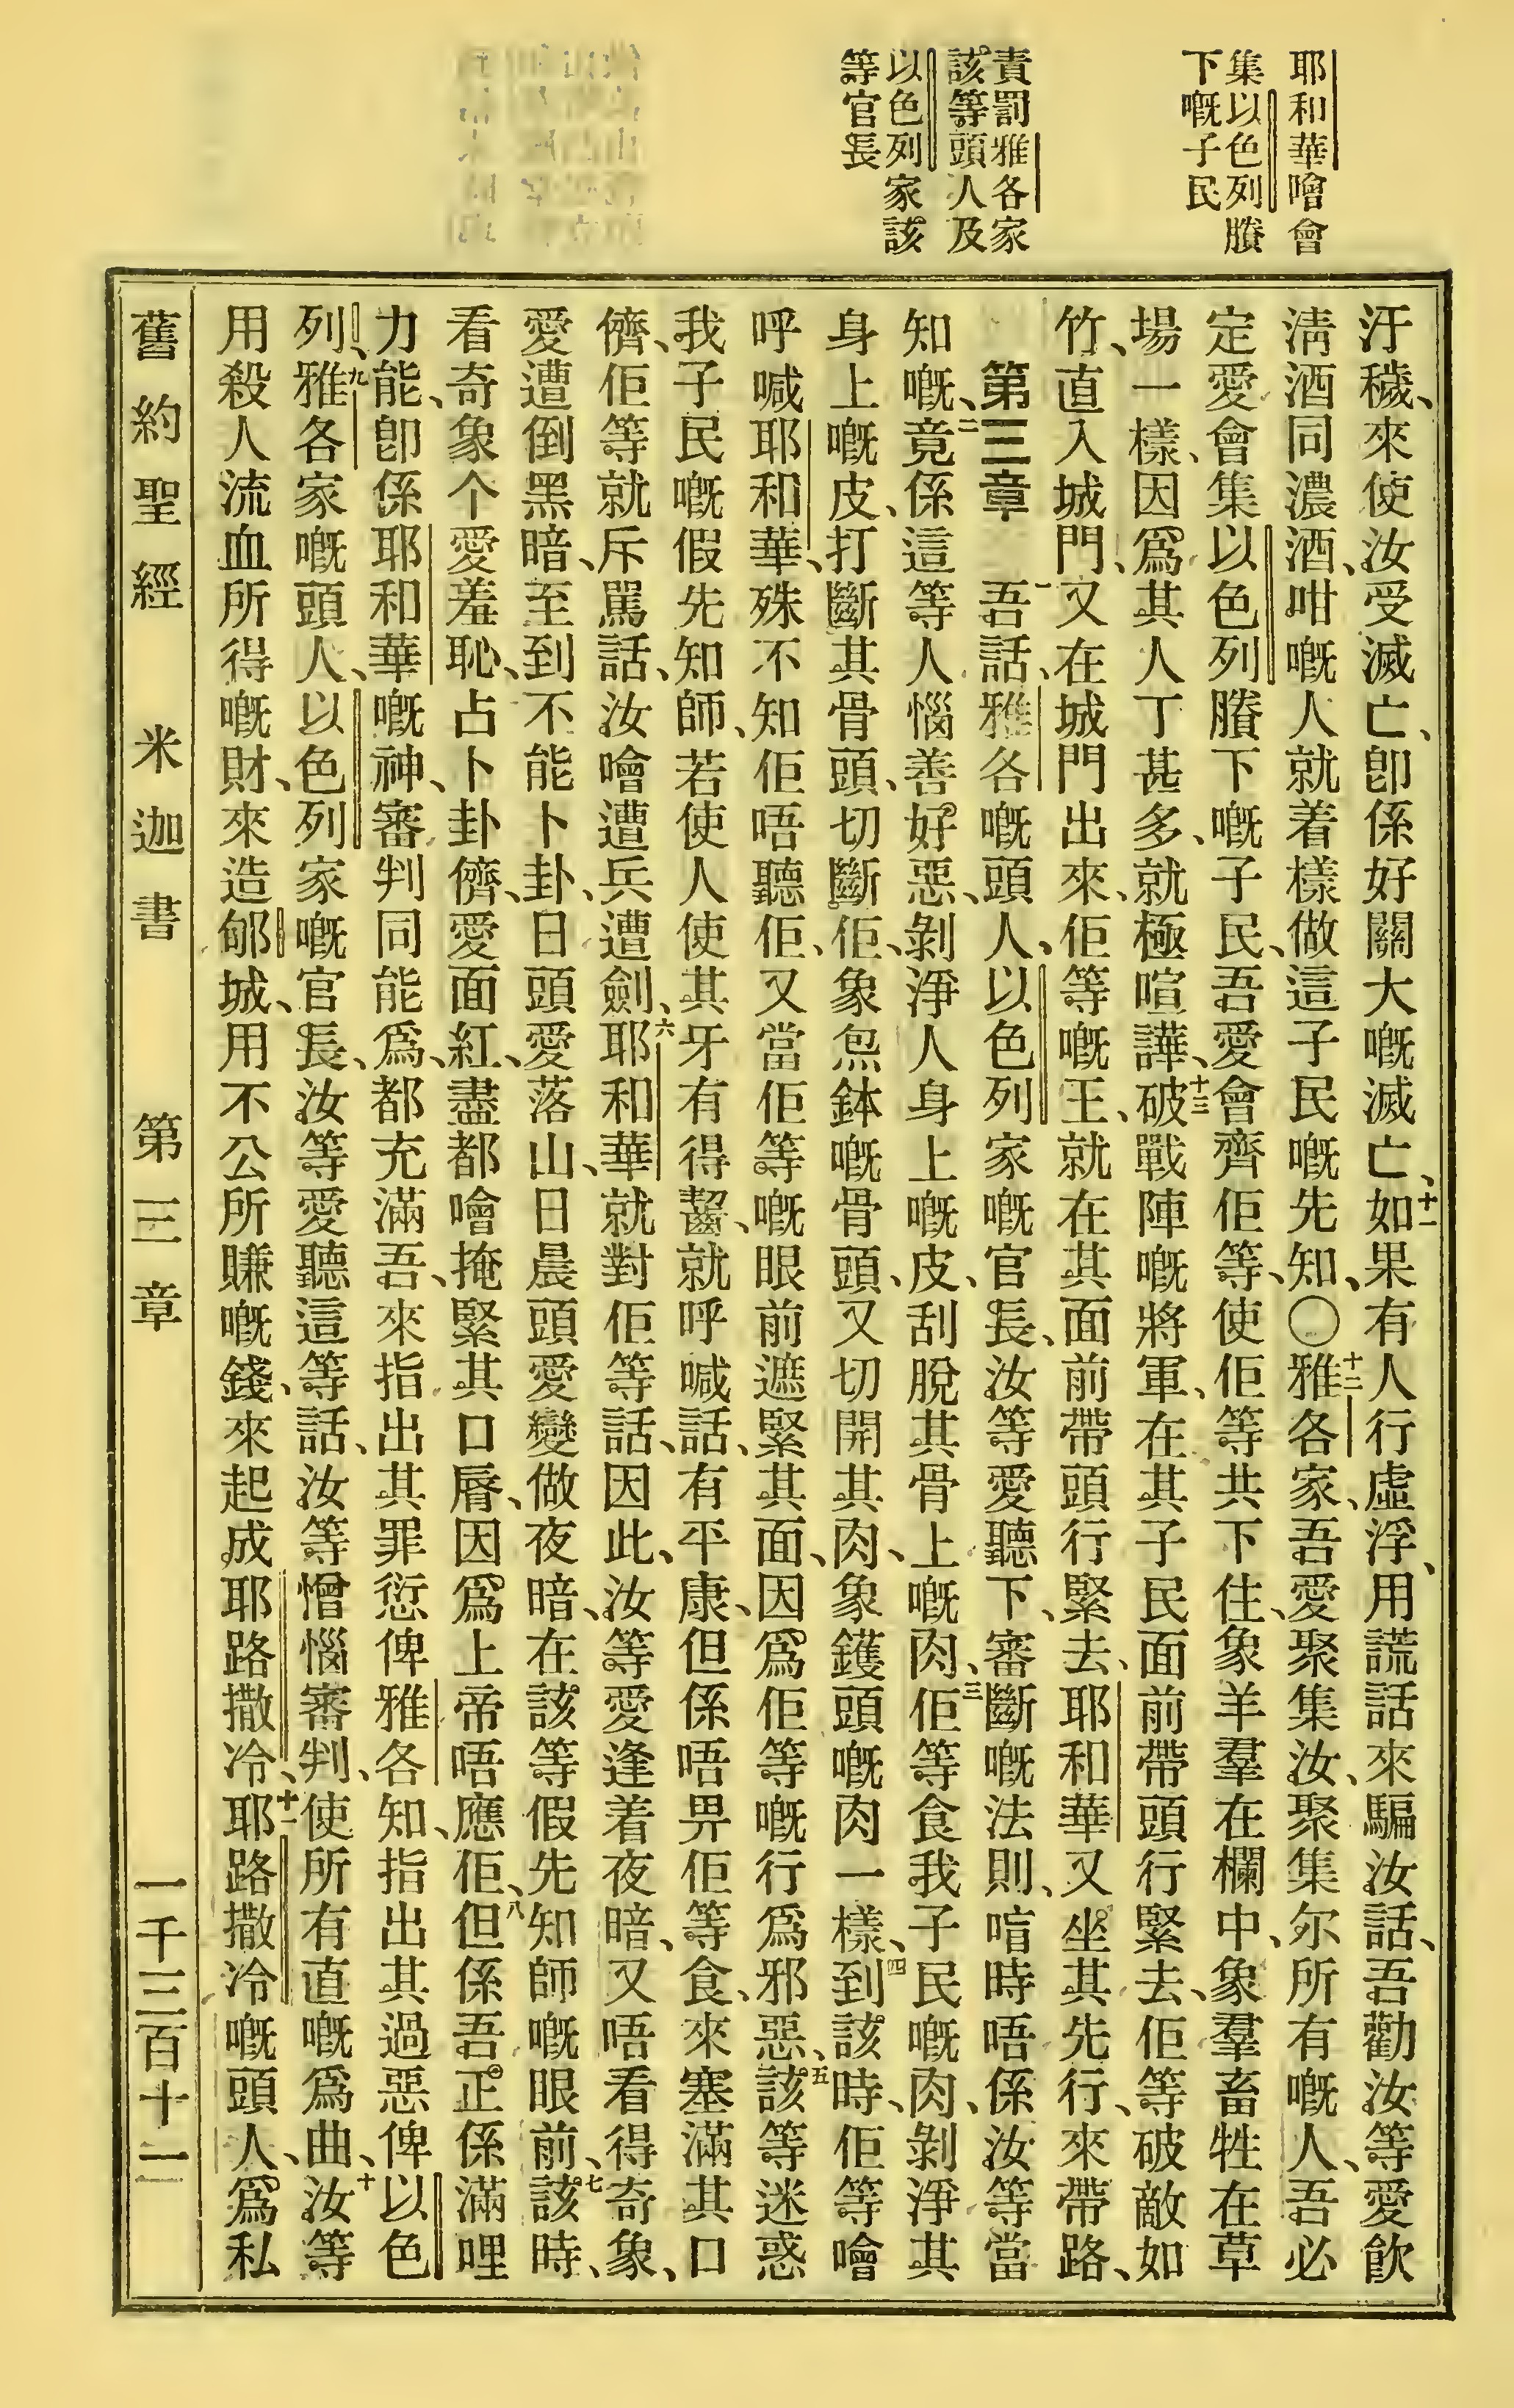 耶和華噲會
集以色列賸
下嘅子民
責罰雅各家
該等頭人及
以色列家該
等官長
汙穢、來使汝受滅亡、卽係好關大嘅滅亡、十一如果有人行虛浮、用謊話來騙汝話、吾勸汝等愛飲
淸酒同濃酒、咁嘅人就着樣做這子民嘅先知、〇十二雅各家、吾愛聚集汝、聚集尔所有嘅人、吾必
定愛會集以色列賸下嘅子民、吾愛會齊佢等、使佢等共下住、象羊羣在欄中、象羣畜牲在草
場一樣、因爲其人丁甚多、就極喧譁、十三破戰陣嘅將軍、在其子民面前帶頭行緊去、佢等破敵如
竹、直入城門、又在城門出來、佢等嘅王、就在其面前帶頭行緊去、耶和華又坐其先行、來帶路、
第三章 一吾話、雅各嘅頭人、以色列家嘅官長、汝等愛聽下、審斷嘅法則、唷時唔係汝等當
知嘅、二竟係這等人惱善好惡、剝淨人身上嘅皮、刮脫其骨上嘅肉、三佢等食我子民嘅肉、剝淨其
身上嘅皮、打斷其骨頭、切斷佢、象炰鉢嘅骨頭、又切開其肉、象鑊頭嘅肉一樣、四到該時、佢等噲
呼喊耶和華、殊不知佢唔聽佢、又當佢等嘅眼前遮緊其面、因爲佢等嘅行爲邪惡、五該等迷惑
我子民嘅假先知師、若使人使其牙有得齧、就呼喊話、有平康、但係唔畀佢等食、來塞滿其口
儕、佢等就斥罵話、汝噲遭兵遭劍、六耶和華就對佢等話、因此、汝等愛逢着夜暗、又唔看得奇象、
愛遭倒黑暗、至到不能卜卦、日頭愛落山、日晨頭愛變做夜暗、在該等假先知師嘅眼前、七該時、
看奇象个愛羞恥、占卜卦儕、愛面紅、盡都噲掩緊其口脣、因爲上帝唔應佢、八但係吾正係滿哩
力能、卽係耶和華嘅神、審判同能爲、都充滿吾、來指出其罪愆俾雅各知、指出其過惡俾以色
列、九雅各家嘅頭人、以色列家嘅官長、汝等愛聽這等話、汝等憎惱審判、使所有直嘅爲曲、十汝等
用殺人流血所得嘅財、來造郇城、用不公所賺嘅錢、來起成耶路撒冷、十一耶路撒冷嘅頭人、爲私
舊約聖經 米迦書 第三章 一千三百十二